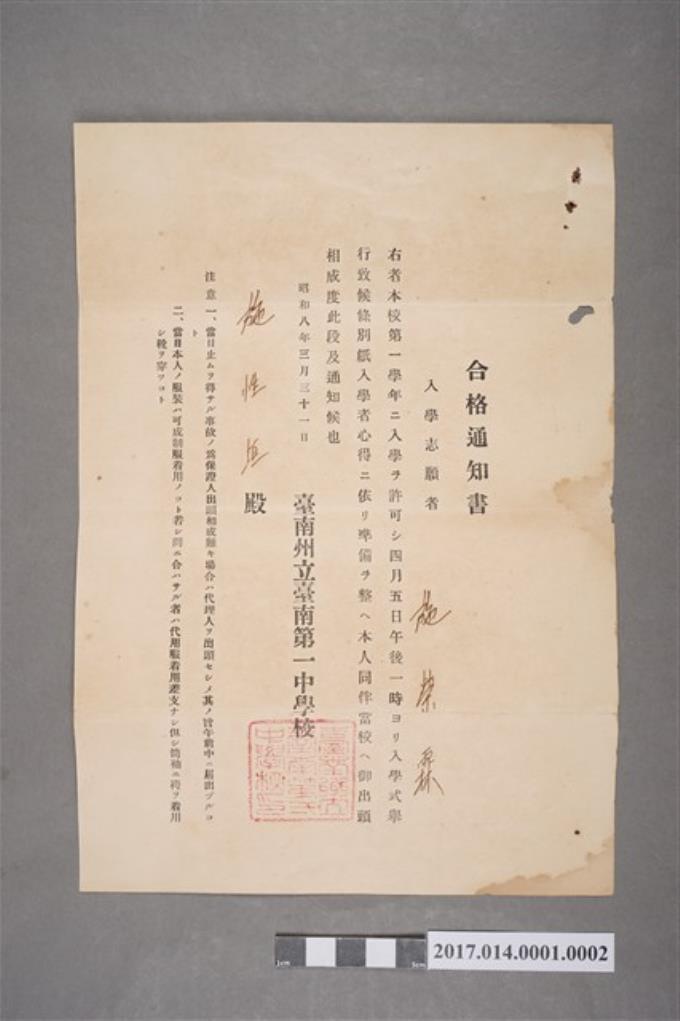 合格通知書
入學志願者 施榮霖
右者本校第一學年ニ入學ヲ許可シ四月五日午後一時ヨリ入學式擧
行致候條別紙入學者心得ニ依リ準備ヲ整ヘ本人同伴當校ヘ御出頭
相成度此段及通知候也
昭和八年三月三十一日
臺南州立臺南第一中學校
施性 殿
注意 一、當日止ムヲ得サル事故ノ爲保證人出頭相成難キ場合ハ代理人ヲ出頭セシメ其ノ旨午前中ニ屆出ツルコ
ト
二、當日本人ノ服裝ハ可成制服着用ノコト若シ間ニ合ハサル者ハ代用服着用差支ナシ但シ筒袖ニ袴ヲ着用
シ靴ヲ穿ツコト
1cm
5cm
2017.014.0001.0002